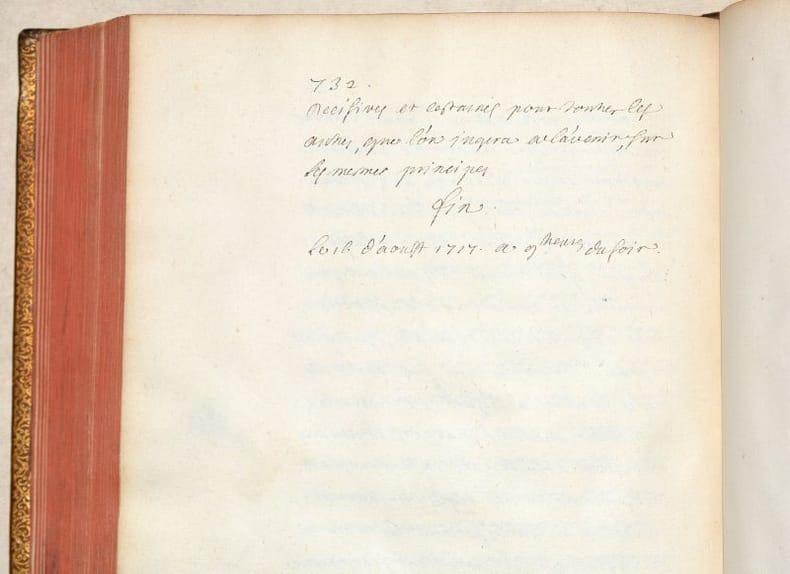 732.
decisives et certaines pour toutes les
autres, que l'on jugera a l'avenir, sur
les mesmes principes
fin.
Le 16 d'aoust 1717. a 9 heures du soir.